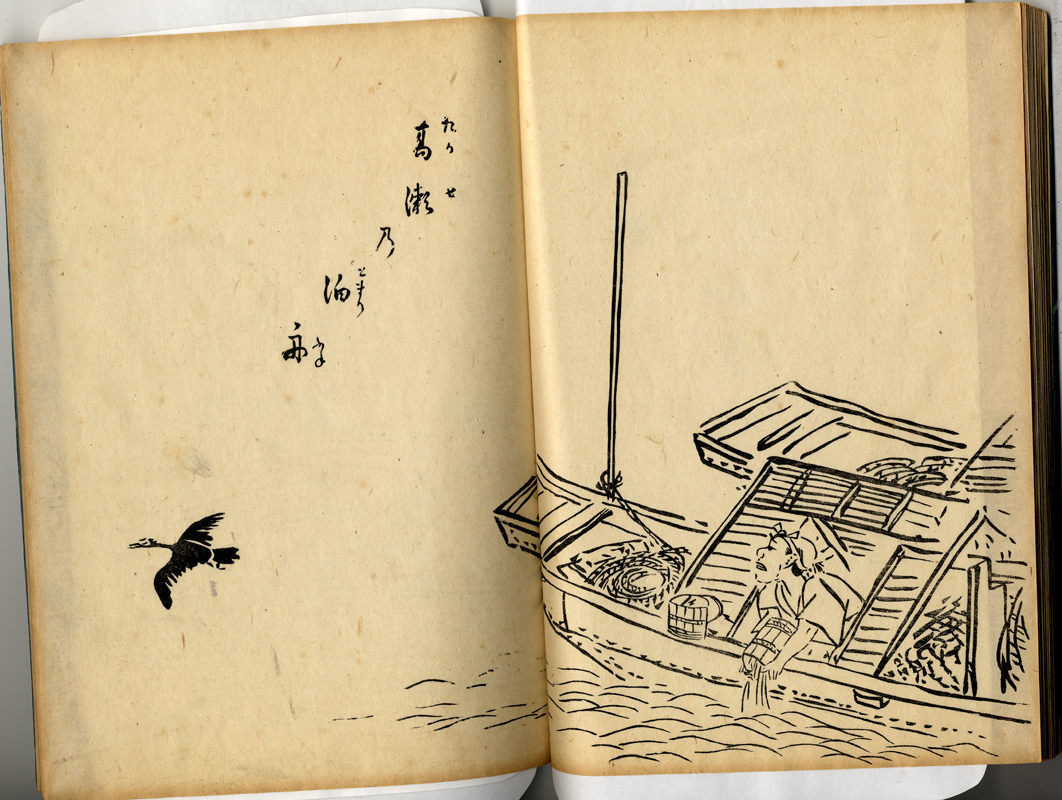 たかせ
高瀬
乃
とまり
泊
舟